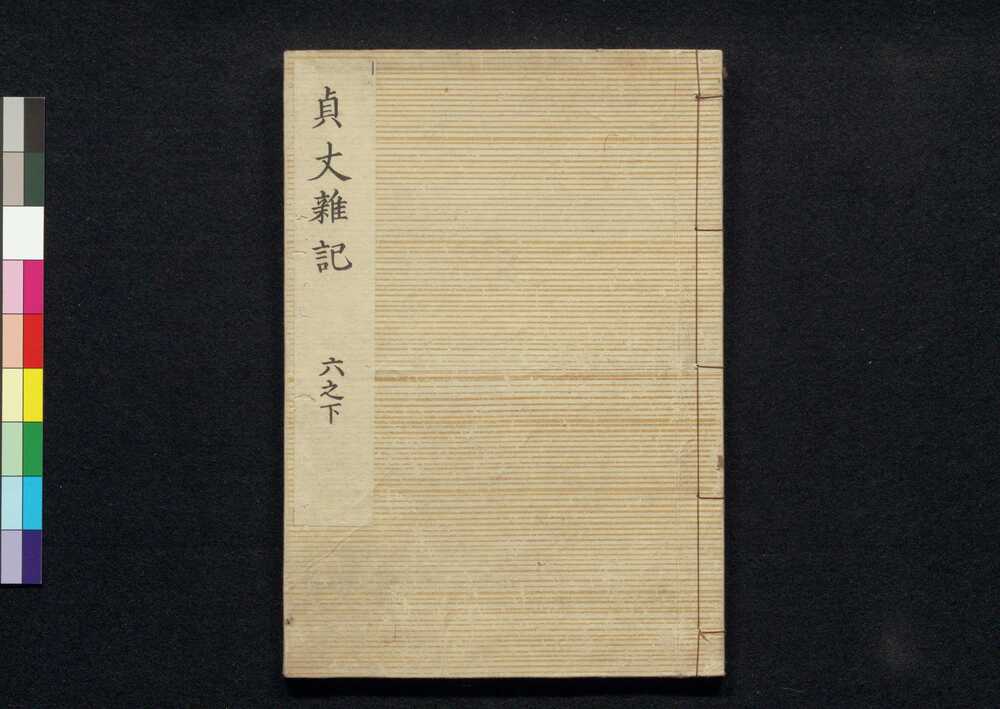 貞丈雜記
六之下